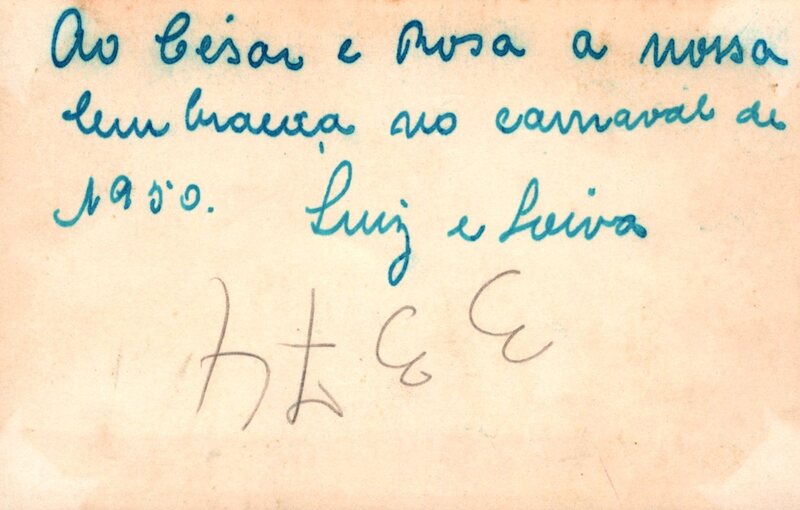 Ao César e Rosa a nossa
lembrança no carnaval de
1950. Luiz e Loiva